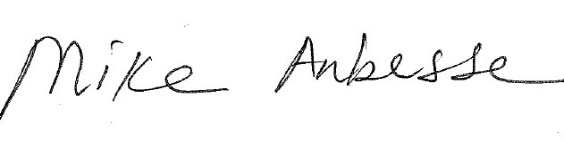 Mike Anbesse